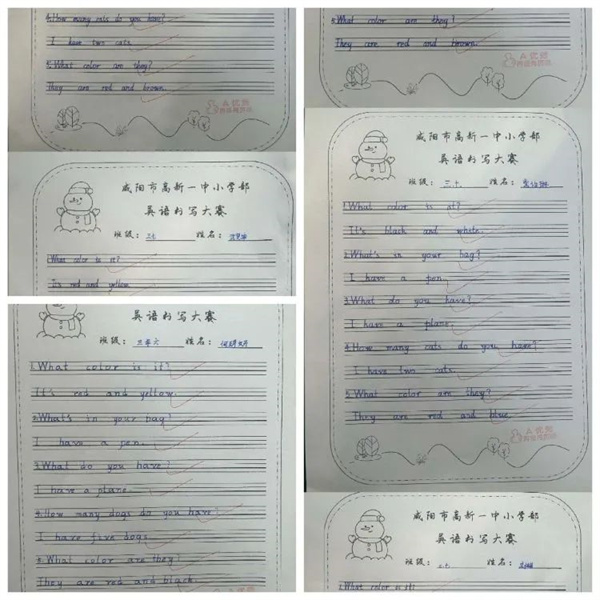 4.How many cats do you have?
I have two cats.
5.What color are they?
They are red and brown.
A 优秀
咸阳市高新一中小学部
英语书写大赛
班级： 姓名：
1.What color is it?
It's red and yellow.
英语书写大赛
班级：三年六 姓名：
1.What color is it?
It's red and yellow.
2.What's in your bag?
I have a pen.
3.What do you have?
I have a plane.
4.How many dogs do you have?
I have five dogs.
5.What color are they?
They are red and black.
5.What color are they?
They are red and brown.
A 优秀
咸阳市高新一中小学部
英语书写大赛
班级：三.十. 姓名：
1.What color is it?
It's black and white.
2.What's in your bag?
I have a pen.
3.What do you have?
I have a plane.
4.How many cats do you have?
I have two cats.
5.What color are they?
They are red and blue.
A 优秀
咸阳市高新一中小学部
英语书写大赛
班级： 姓名：
1.What color is it?